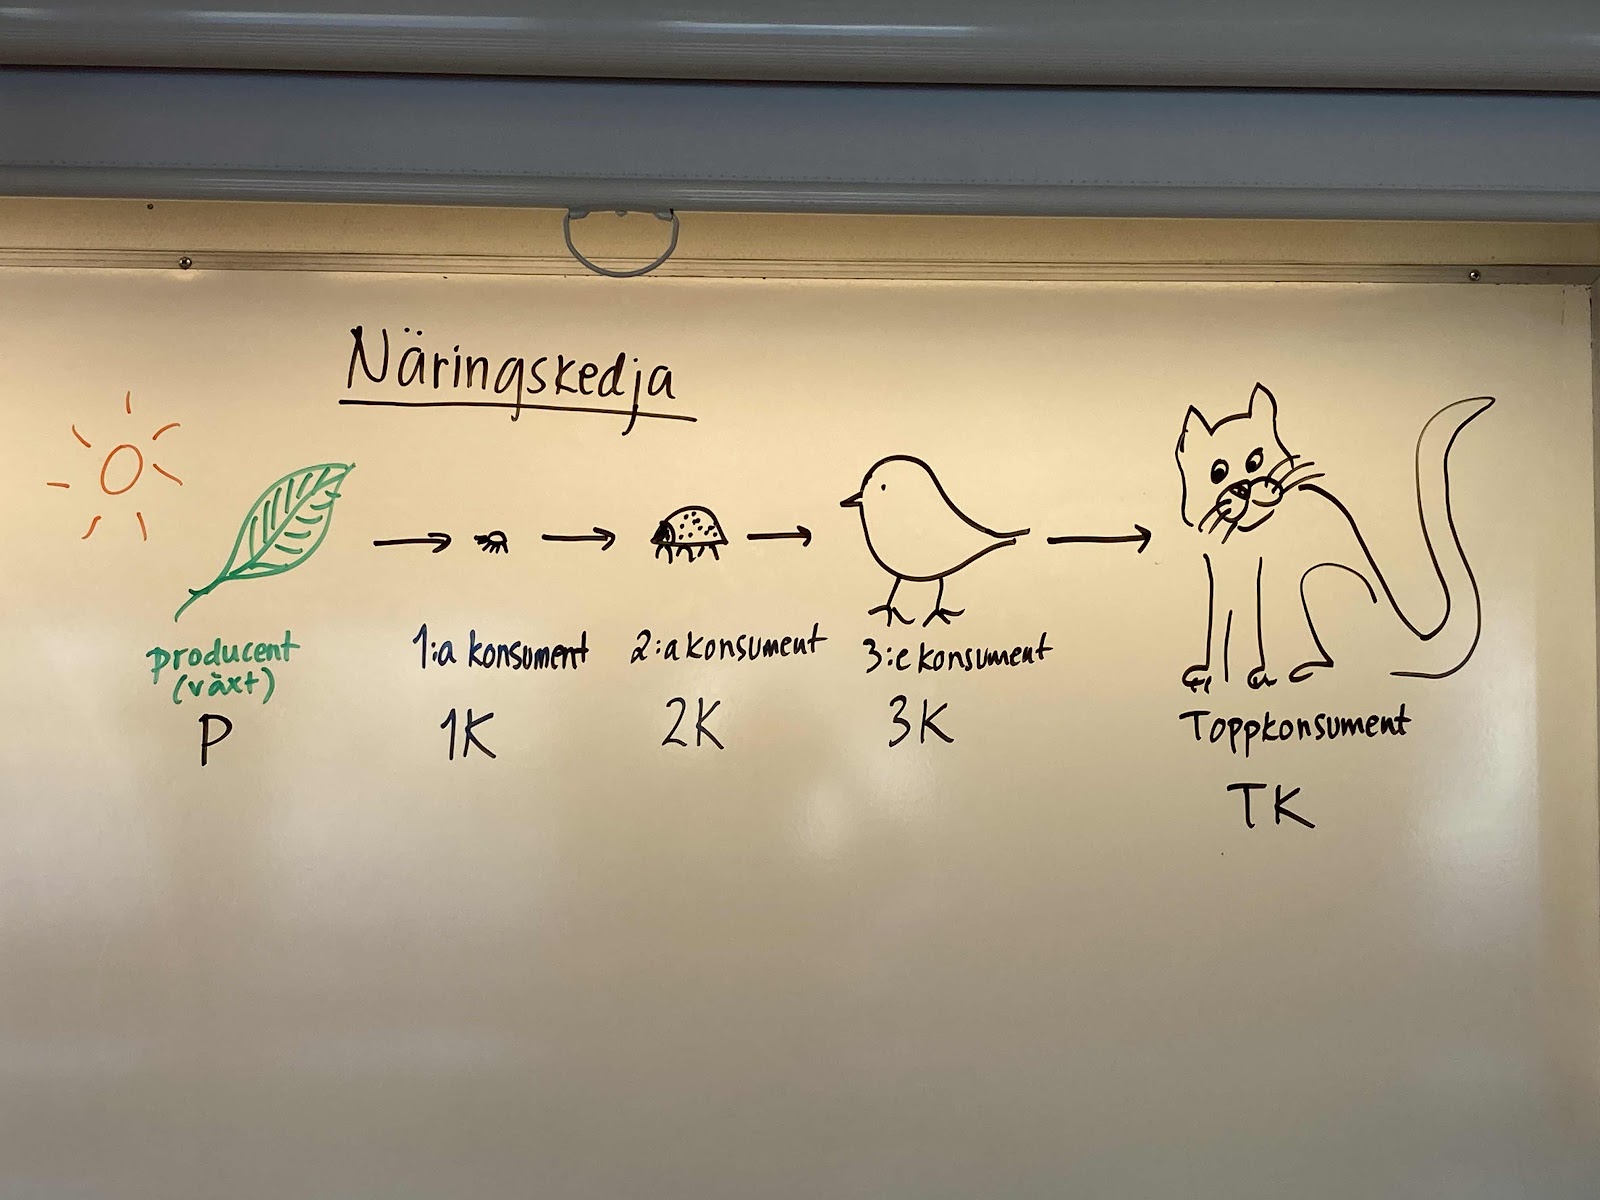 Näringskedja
producent
(växt)
P
1:a konsument
1K
2:a konsument
2K
3:e konsument
3K
Toppkonsument
TK